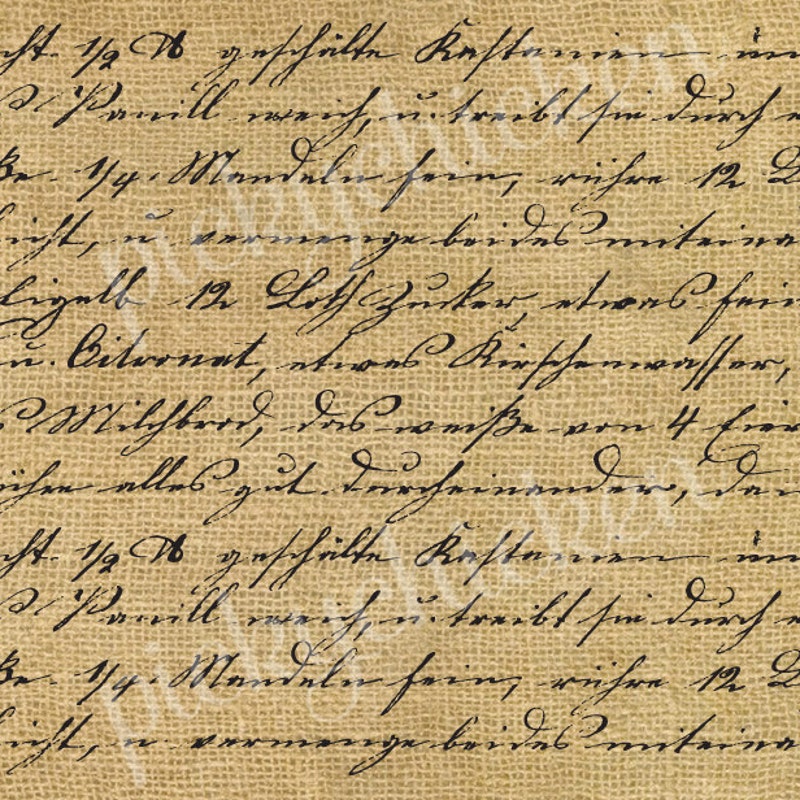 cht. 1/2 ℔ geschälte Kastanien im
Vanill weich, u. treibt sie durch e
ße 1/4. Mandeln fein, rühre 12 L
icht, u. vermenge beides miteina
Eigelb 12 Loth Zucker, etwas fein
u. Citronat, etwas Kirschenwasser,
s Milchbrod, das weiße von 4 Eier
ühre alles gut durcheinander, da
cht. 1/2 ℔ geschälte Kastanien im
Vanill weich, u. treibt sie durch e
ße 1/4. Mandeln fein, rühre 12 L
icht, u. vermenge beides miteina
pickychicken
pickychicken